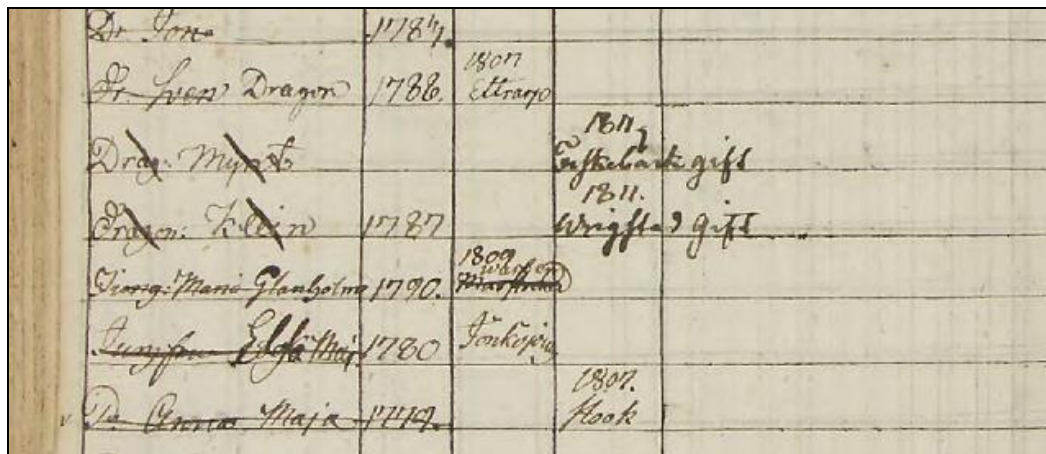 Dr. Jon 1784.
Dr. Sven Dragon 1788. 1807 Ettrarp
Drag: Mynt 1811 gift
Dragon: Klein 1787 1811. Wrigstad gift
Maria Glanholm 1790. 1809
Jungfru Maj: 1780 Jönköping
Do Anna Maja 1779. 1807. Hook